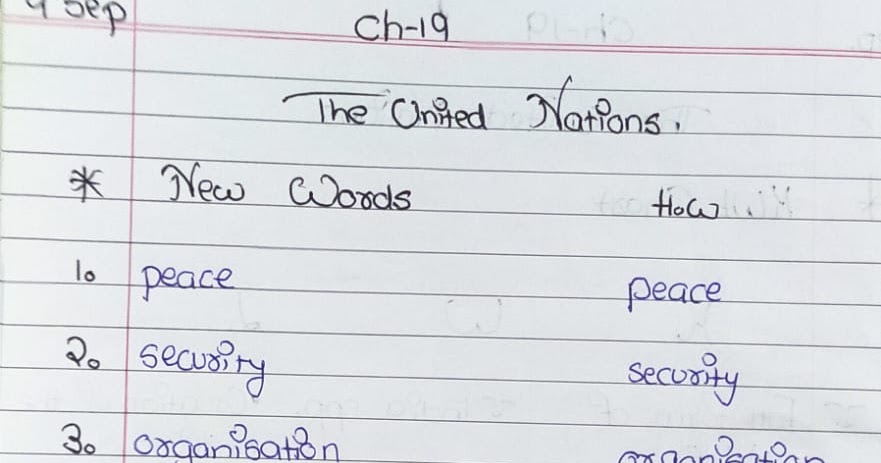 4 Sep Ch-19
The United Nations.
* New Words H.W
1. peace peace
2. security security
3. organisation organisation